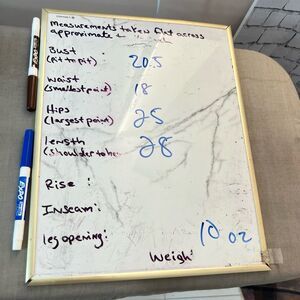 Measurements taken flat across
approximate
Bust :
(Pit to pit) 20.5
Waist :
(smallest point) 18
Hips :
(largest point) 25
length :
(shoulder to he 28
Rise :
Inseam:
leg opening:
10 oz
Weigh:
EXPO
EXPO